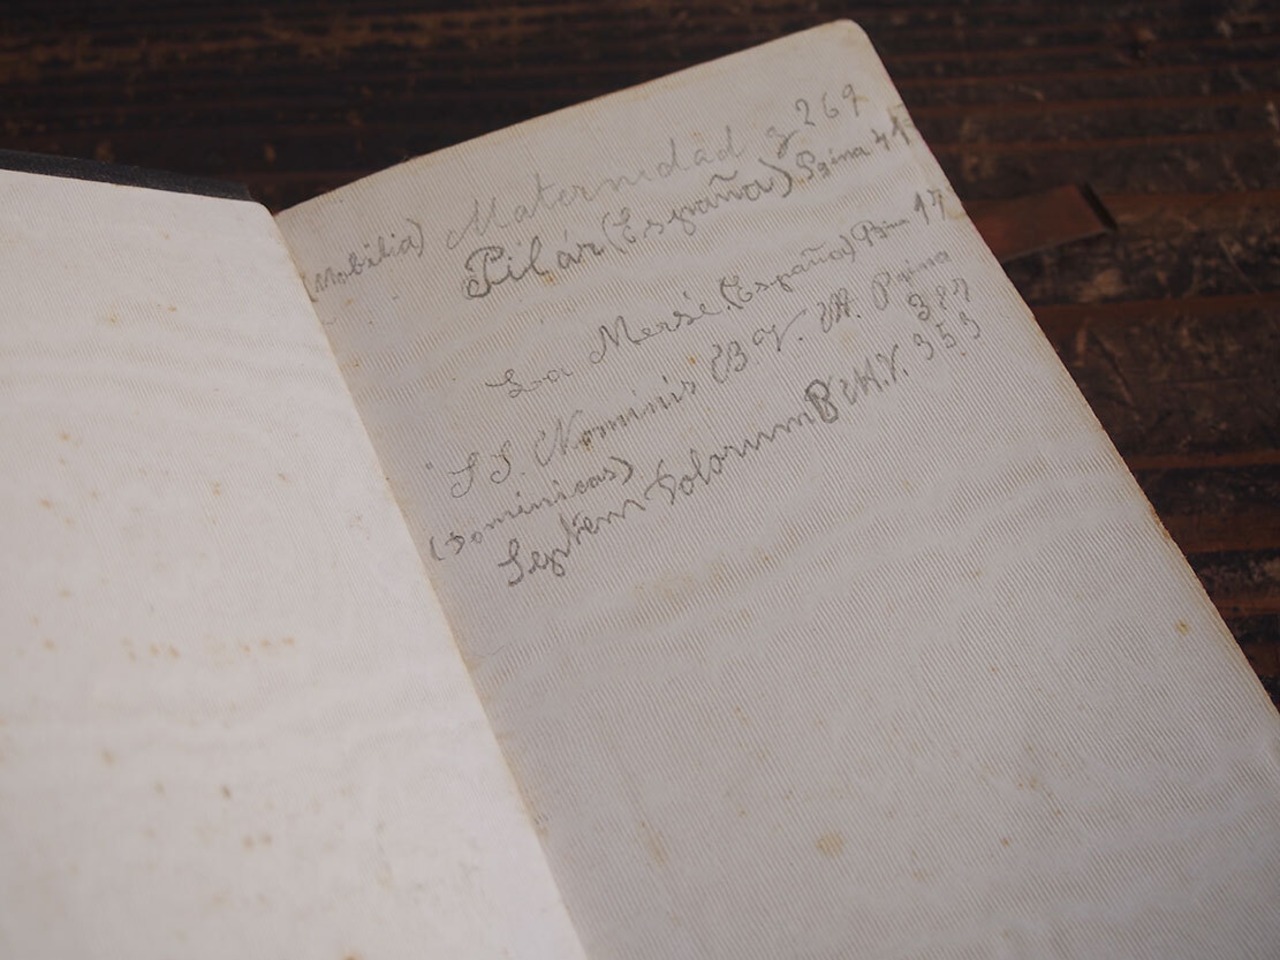 (Mobilia) Maternidad 269
Pilár (España) Pgina 41
La Mersé. (España) 17
S S. Nominis B V. M. Pgina
387
(Dominicas)
Septem Dolorum B M.V. 353